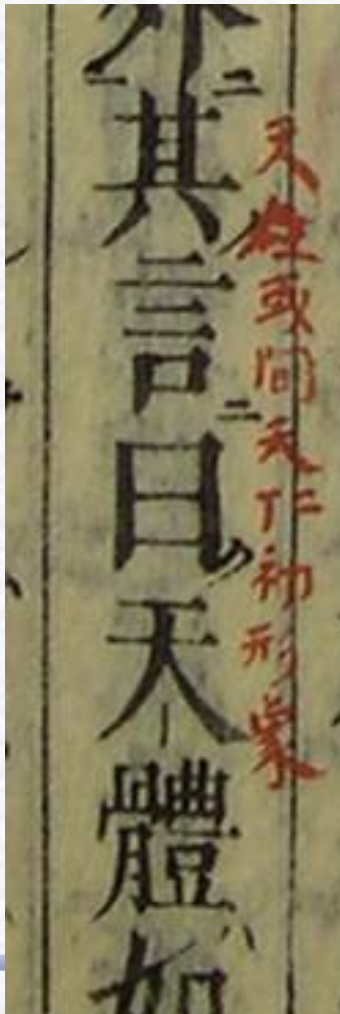 其言曰天體如
天経或問天仁初形象